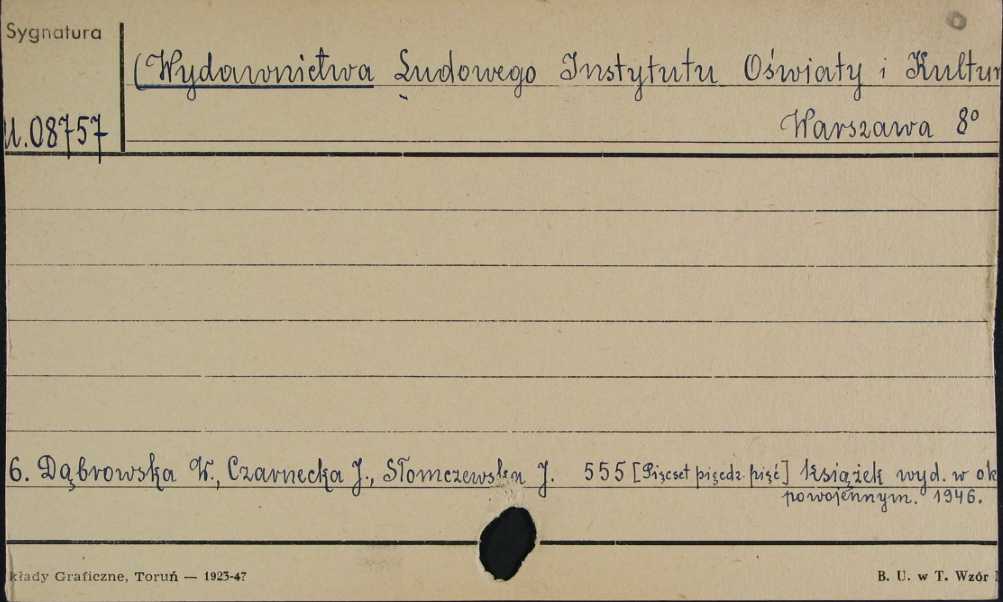 Sygnatura
(Wydawnictwa Ludowego Instytutu Oświaty i Kultur
U.08757
Warszawa 8°
6. Dąbrowska W., Czarnecka J., Słomczewska J. 555 [Pięćset pięćdz. pięć] książek wyd. w ok
powojennym. 1946.
kłady Graficzne, Toruń — 1923-47
B. U. w T. Wzór